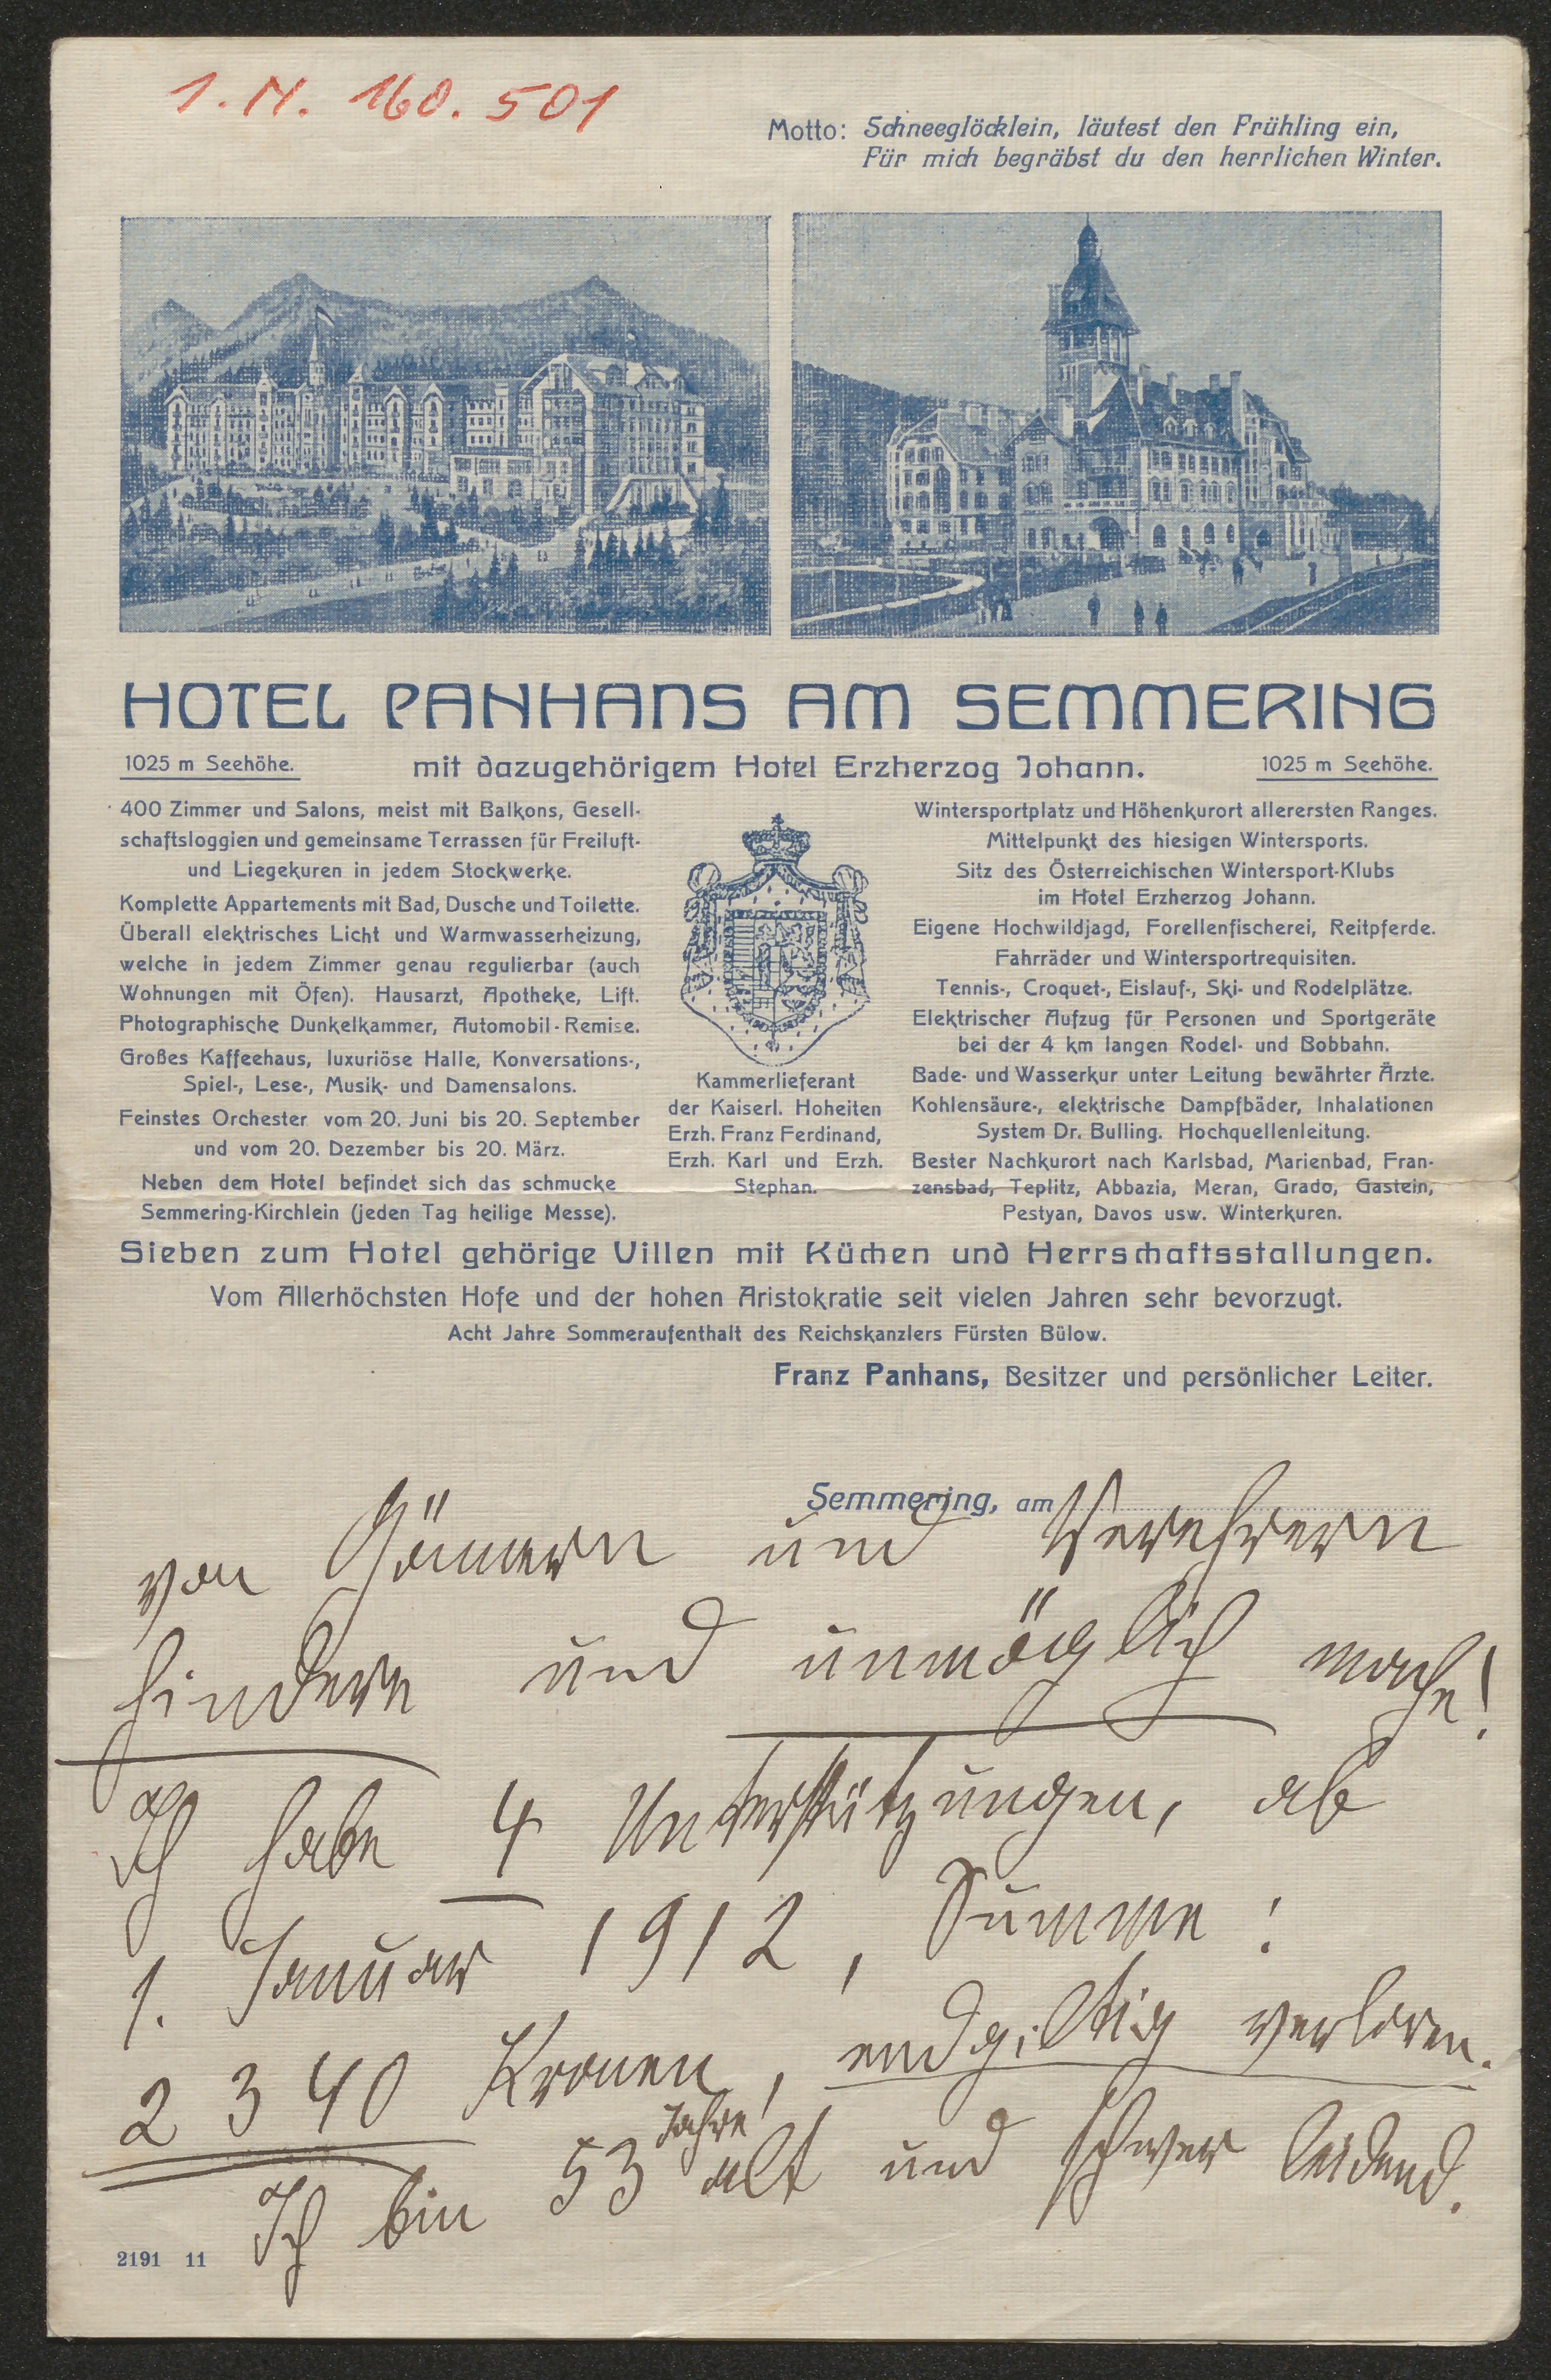 1. N. 160. 501
Motto: Schneeglöcklein, läutest den Frühling ein,
Für mich begräbst du den herrlichen Winter.
HOTEL PANHANS AM SEMMERING
1025 m Seehöhe.
mit dazugehörigem Hotel Erzherzog Johann.
1025 m Seehöhe.
400 Zimmer und Salons, meist mit Balkons, Gesell-
schaftsloggien und gemeinsame Terrassen für Freiluft-
und Liegekuren in jedem Stockwerke.
Komplette Appartements mit Bad, Dusche und Toilette.
Überall elektrisches Licht und Warmwasserheizung,
welche in jedem Zimmer genau regulierbar (auch
Wohnungen mit Öfen). Hausarzt, Apotheke, Lift.
Photographische Dunkelkammer, Automobil-Remise.
Großes Kaffeehaus, luxuriöse Halle, Konversations-,
Spiel-, Lese-, Musik- und Damensalons.
Feinstes Orchester vom 20. Juni bis 20. September
und vom 20. Dezember bis 20. März.
Neben dem Hotel befindet sich das schmucke
Semmering-Kirchlein (jeden Tag heilige Messe).
Kammerlieferant
der Kaiserl. Hoheiten
Erzh. Franz Ferdinand,
Erzh. Karl und Erzh.
Stephan.
Wintersportplatz und Höhenkurort allerersten Ranges.
Mittelpunkt des hiesigen Wintersports.
Sitz des Österreichischen Wintersport-Klubs
im Hotel Erzherzog Johann.
Eigene Hochwildjagd, Forellenfischerei, Reitpferde.
Fahrräder und Wintersportrequisiten.
Tennis-, Croquet-, Eislauf-, Ski- und Rodelplätze.
Elektrischer Aufzug für Personen und Sportgeräte
bei der 4 km langen Rodel- und Bobbahn.
Bade- und Wasserkur unter Leitung bewährter Ärzte.
Kohlensäure-, elektrische Dampfbäder, Inhalationen
System Dr. Bulling. Hochquellenleitung.
Bester Nachkurort nach Karlsbad, Marienbad, Fran-
zensbad, Teplitz, Abbazia, Meran, Grado, Gastein,
Pestyan, Davos usw. Winterkuren.
Sieben zum Hotel gehörige Villen mit Küchen und Herrschaftsstallungen.
Vom Allerhöchsten Hofe und der hohen Aristokratie seit vielen Jahren sehr bevorzugt.
Acht Jahre Sommeraufenthalt des Reichskanzlers Fürsten Bülow.
Franz Panhans, Besitzer und persönlicher Leiter.
Semmering, am
von Gönnern und Verehrern
hindere und unmöglich mache!
Ich habe 4 Unterstützungen, ab
1. Januar 1912, Summe:
2340 Kronen, endgiltig verloren.
Ich bin 53 Jahre alt und schwer leidend.
2191 11